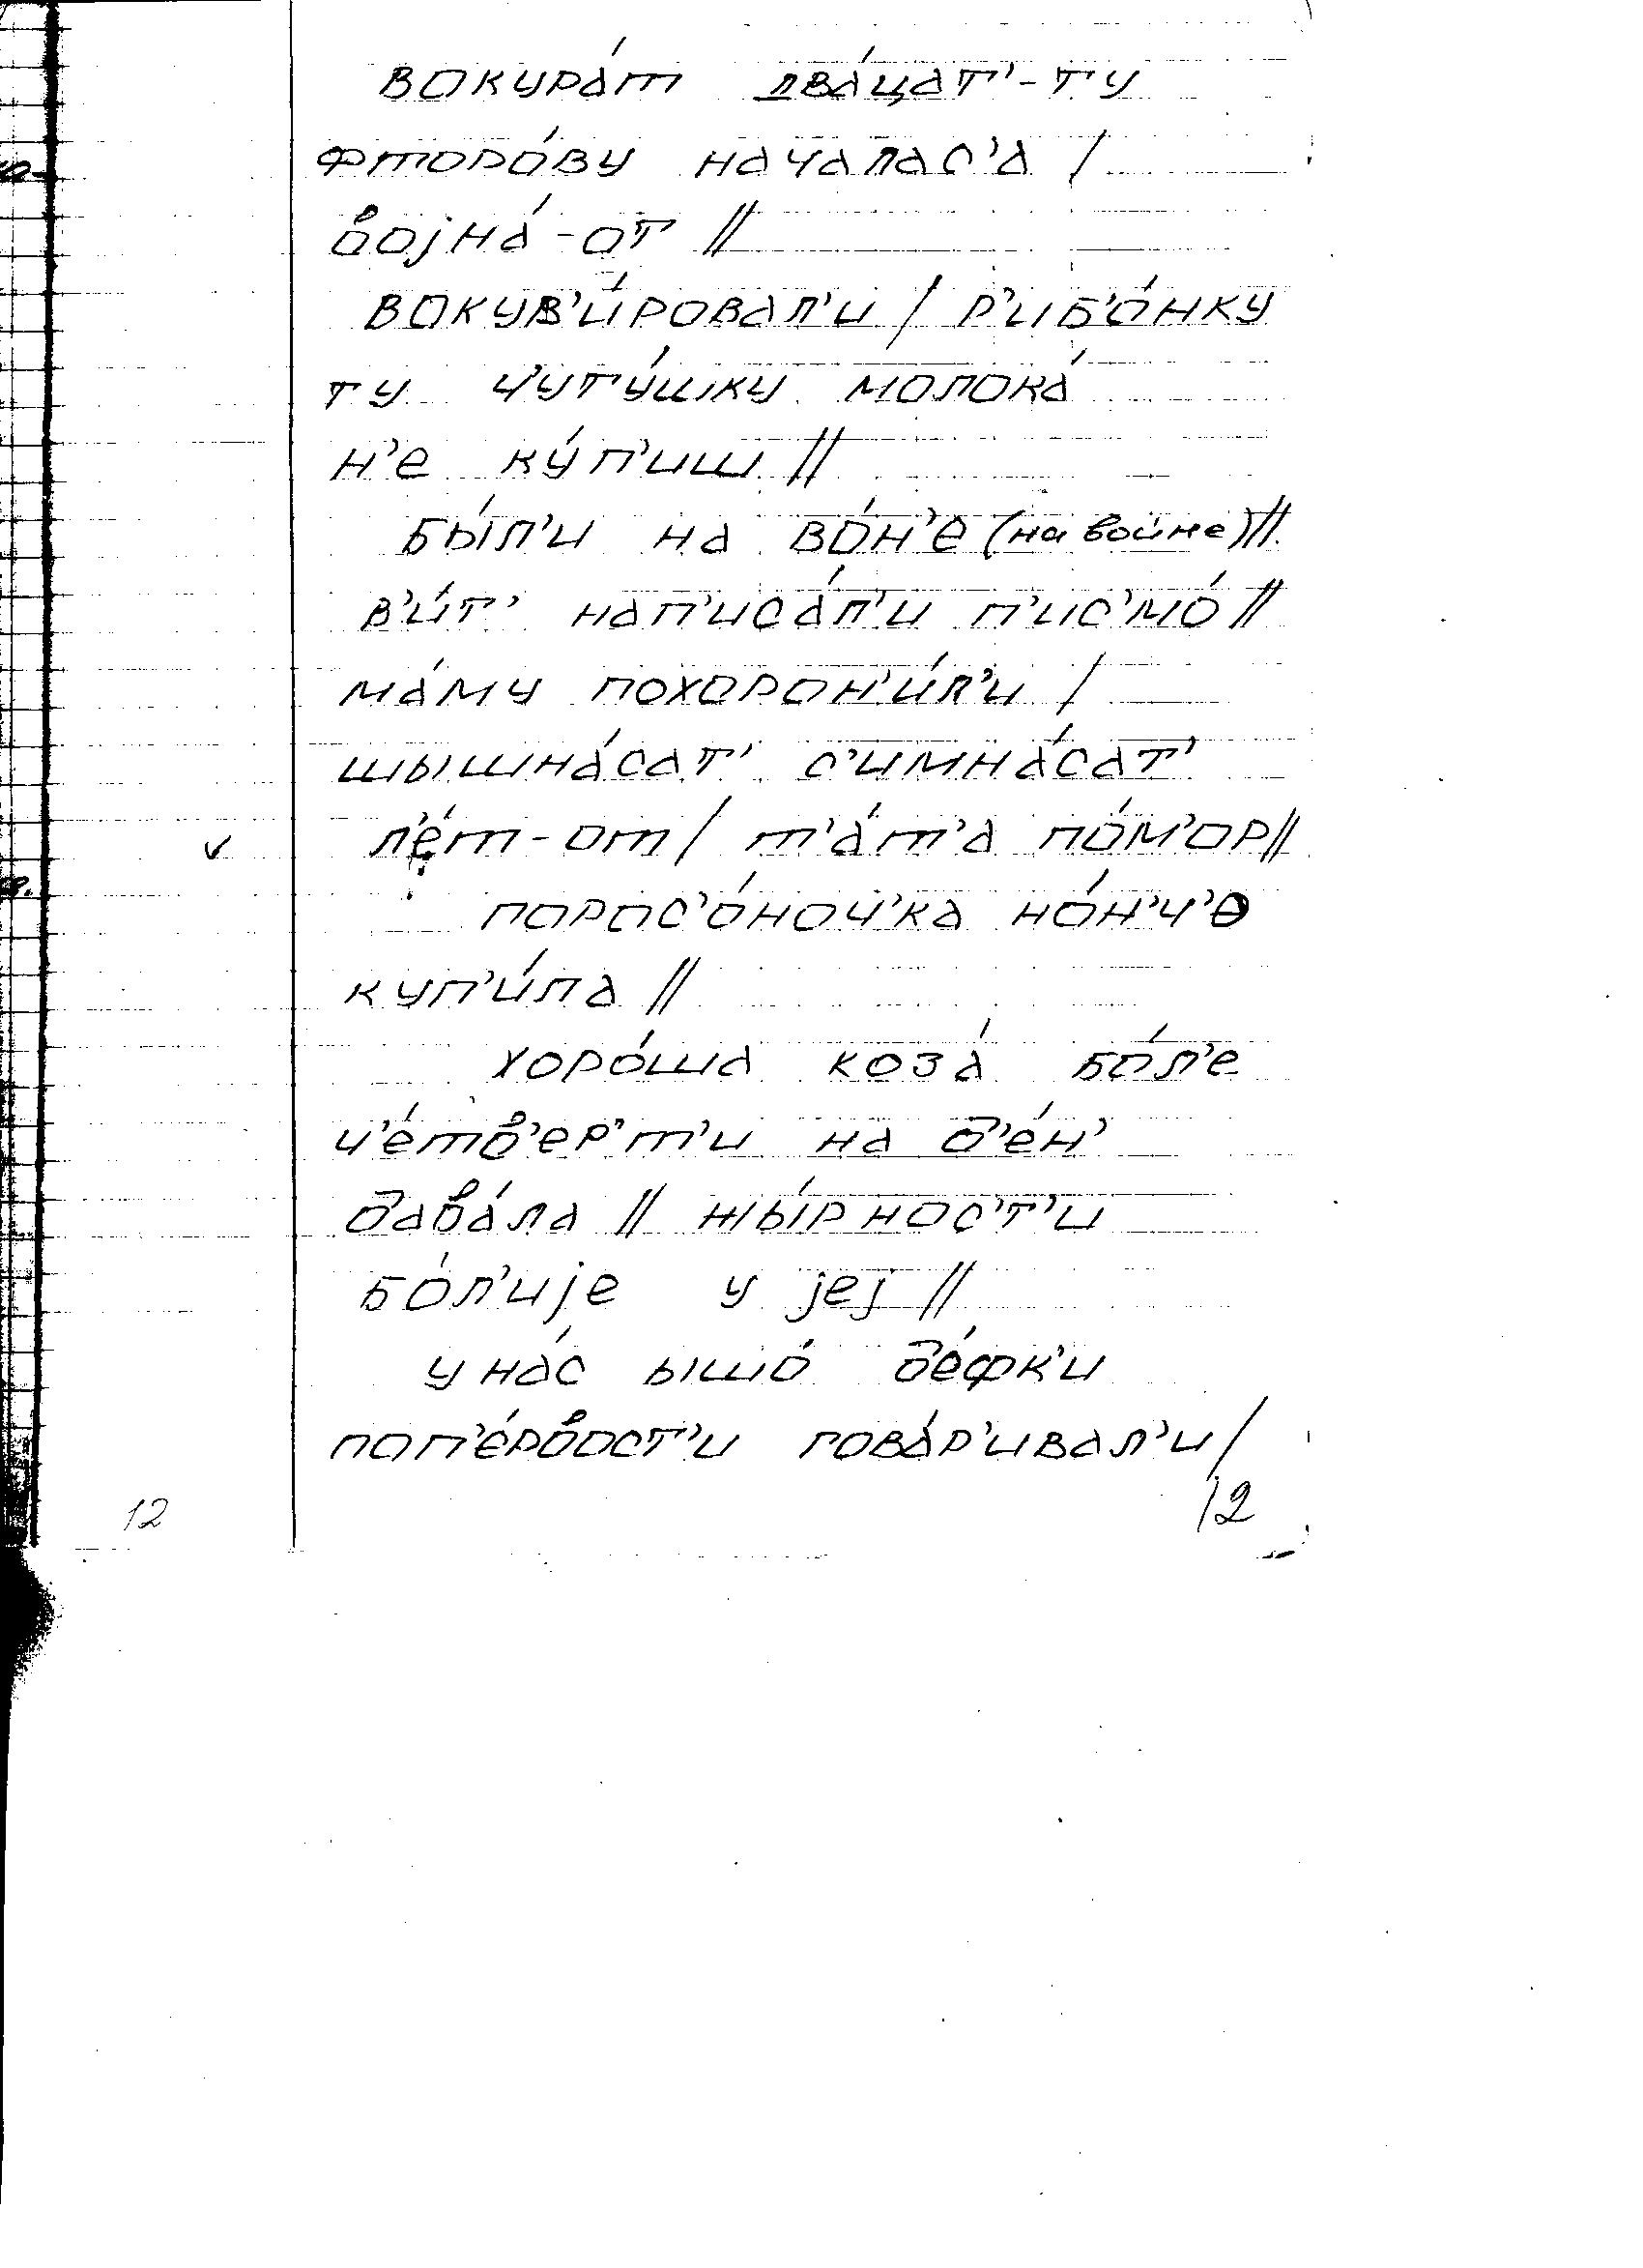 вокура́т два́цат'-ту
фторо́ву началас'а /
војна́-от //
вокув'и́ровал'и / р'иб'о́нку
ту ч'уту́шку молока́
н'е ку́п'иш //
бы́л'и на во́н'е (на войне) //
в'и́т' нап'иса́л'и п'ис'мо́ //
ма́му похорон'и́л'и /
шышна́сат' с'имна́сат'
л'е́т-от / т'а́т'а по́м'ор //
порос'о́ноч'ка но́н'ч'о
куп'и́ла //
хоро́ша коза́ бо́л'е
ч'е́тв'ер'т'и на д'е́н'
дава́ла // жы́рнос'т'и
бо́л'ије у јеј //
у на́с ышо́ д'е́фк'и
поп'е́рвост'и гова́р'ивал'и /
12
12